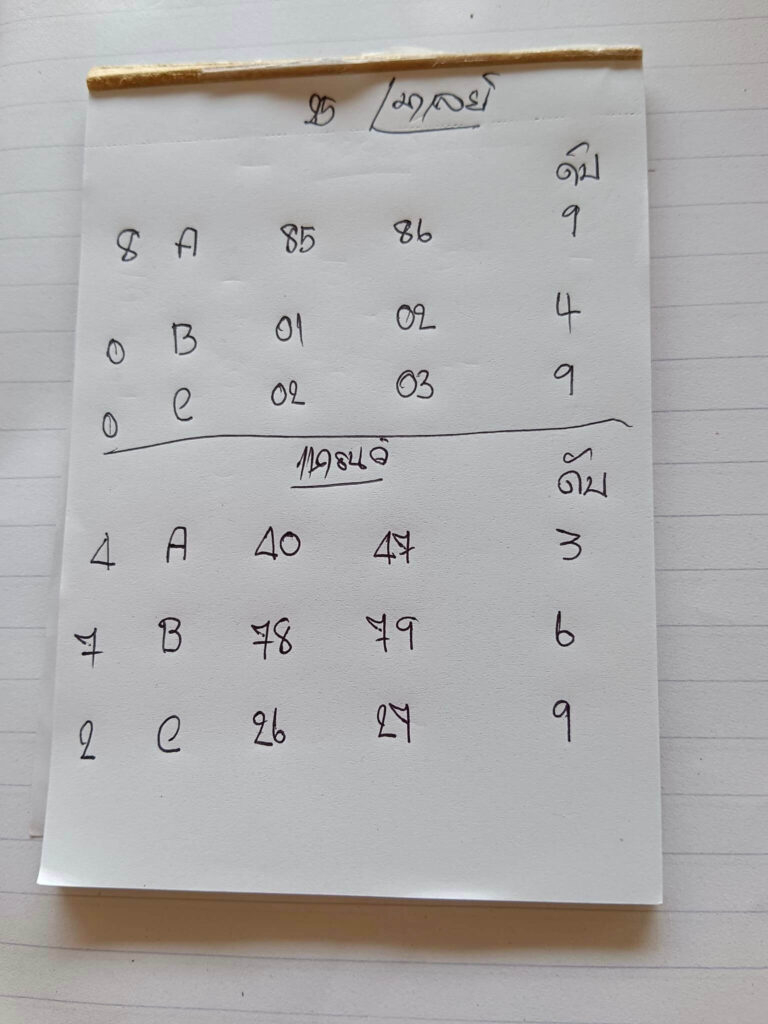 25 มาเลย์
ดับ
8 A 85 86 9
0 B 01 02 4
0 C 02 03 9
ดับ
4 A 40 47 3
7 B 78 79 6
2 C 26 27 9